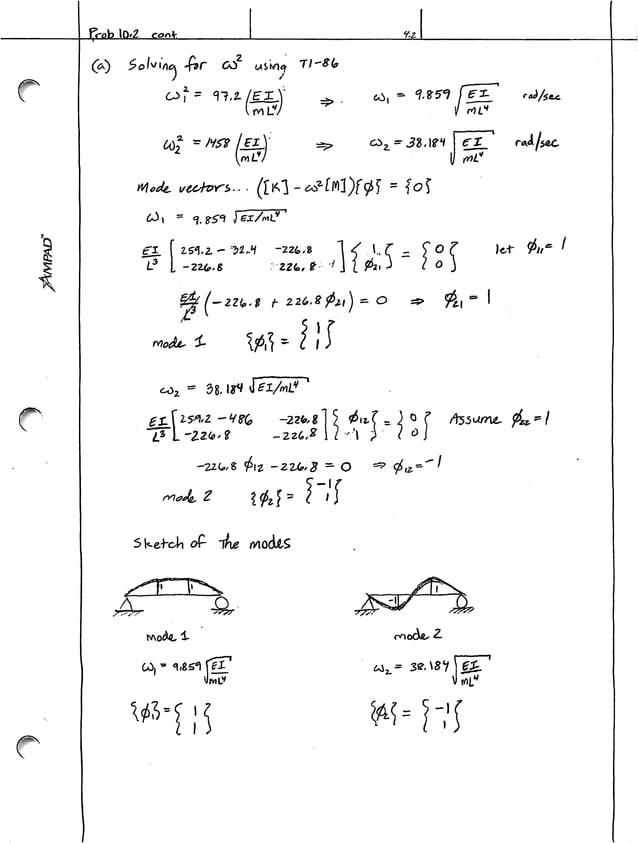 Prob 10.2 cont 4.2
(a) Solving for ω² using TI-86
ω₁² = 97.2 (EI/mL⁴) ⇒ ω₁ = 9.859 √(EI/mL⁴) rad/sec
ω₂² = 1458 (EI/mL⁴) ⇒ ω₂ = 38.184 √(EI/mL⁴) rad/sec
Mode vectors... ([K] - ω²[M]){ϕ} = {0}
ω₁ = 9.859 √EI/mL⁴
EI/L³ [259.2 - 32.4 -226.8; -226.8 226.8] {1; ϕ₂₁} = {0; 0} let ϕ₁₁ = 1
EI/L³ (-226.8 + 226.8 ϕ₂₁) = 0 ⇒ ϕ₂₁ = 1
mode 1 {ϕ₁} = {1; 1}
ω₂ = 38.184 √EI/mL⁴
EI/L³ [259.2 - 486 -226.8; -226.8 -226.8] {ϕ₁₂; 1} = {0; 0} Assume ϕ₂₂ = 1
-226.8 ϕ₁₂ - 226.8 = 0 ⇒ ϕ₁₂ = -1
mode 2 {ϕ₂} = {-1; 1}
Sketch of The modes
1 1 -1 1
mode 1 mode 2
ω₁ = 9.859 √(EI/mL⁴) ω₂ = 38.184 √(EI/mL⁴)
{ϕ₁} = {1; 1} {ϕ₂} = {-1; 1}
AMPAD™